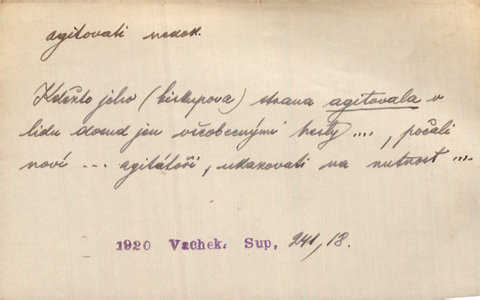 agitovati nedok.
Kdežto jeho (biskupova) strana agitovala v
lidu dosud jen všeobecnými hesly ..., počali
noví ... agitátoři, ukazovati na nutnost ...
1920 Vachek. Sup, 241, 18.